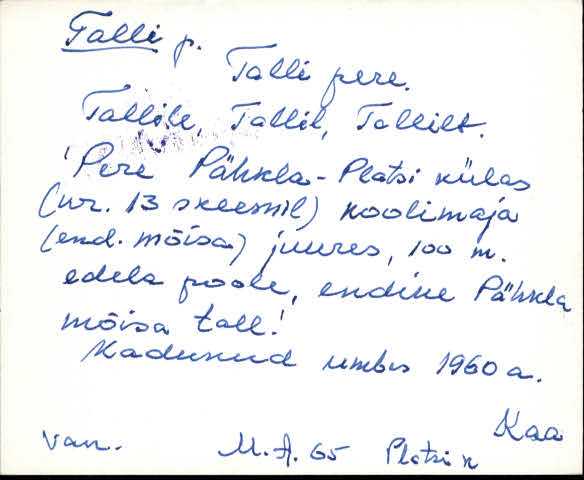 Talli p.
Talli pere.
Tallile, Tallil, Tallilt.
Pere Pähkla-Platsi külas
(nr. 13 skeemil) koolimaja
(end. mõisa) juures, 100 m.
edela poole, endine Pähkla
mõisa tall.
Kadunud umbes 1960 a.
Kaa
van. M. A. 65 Platsi k